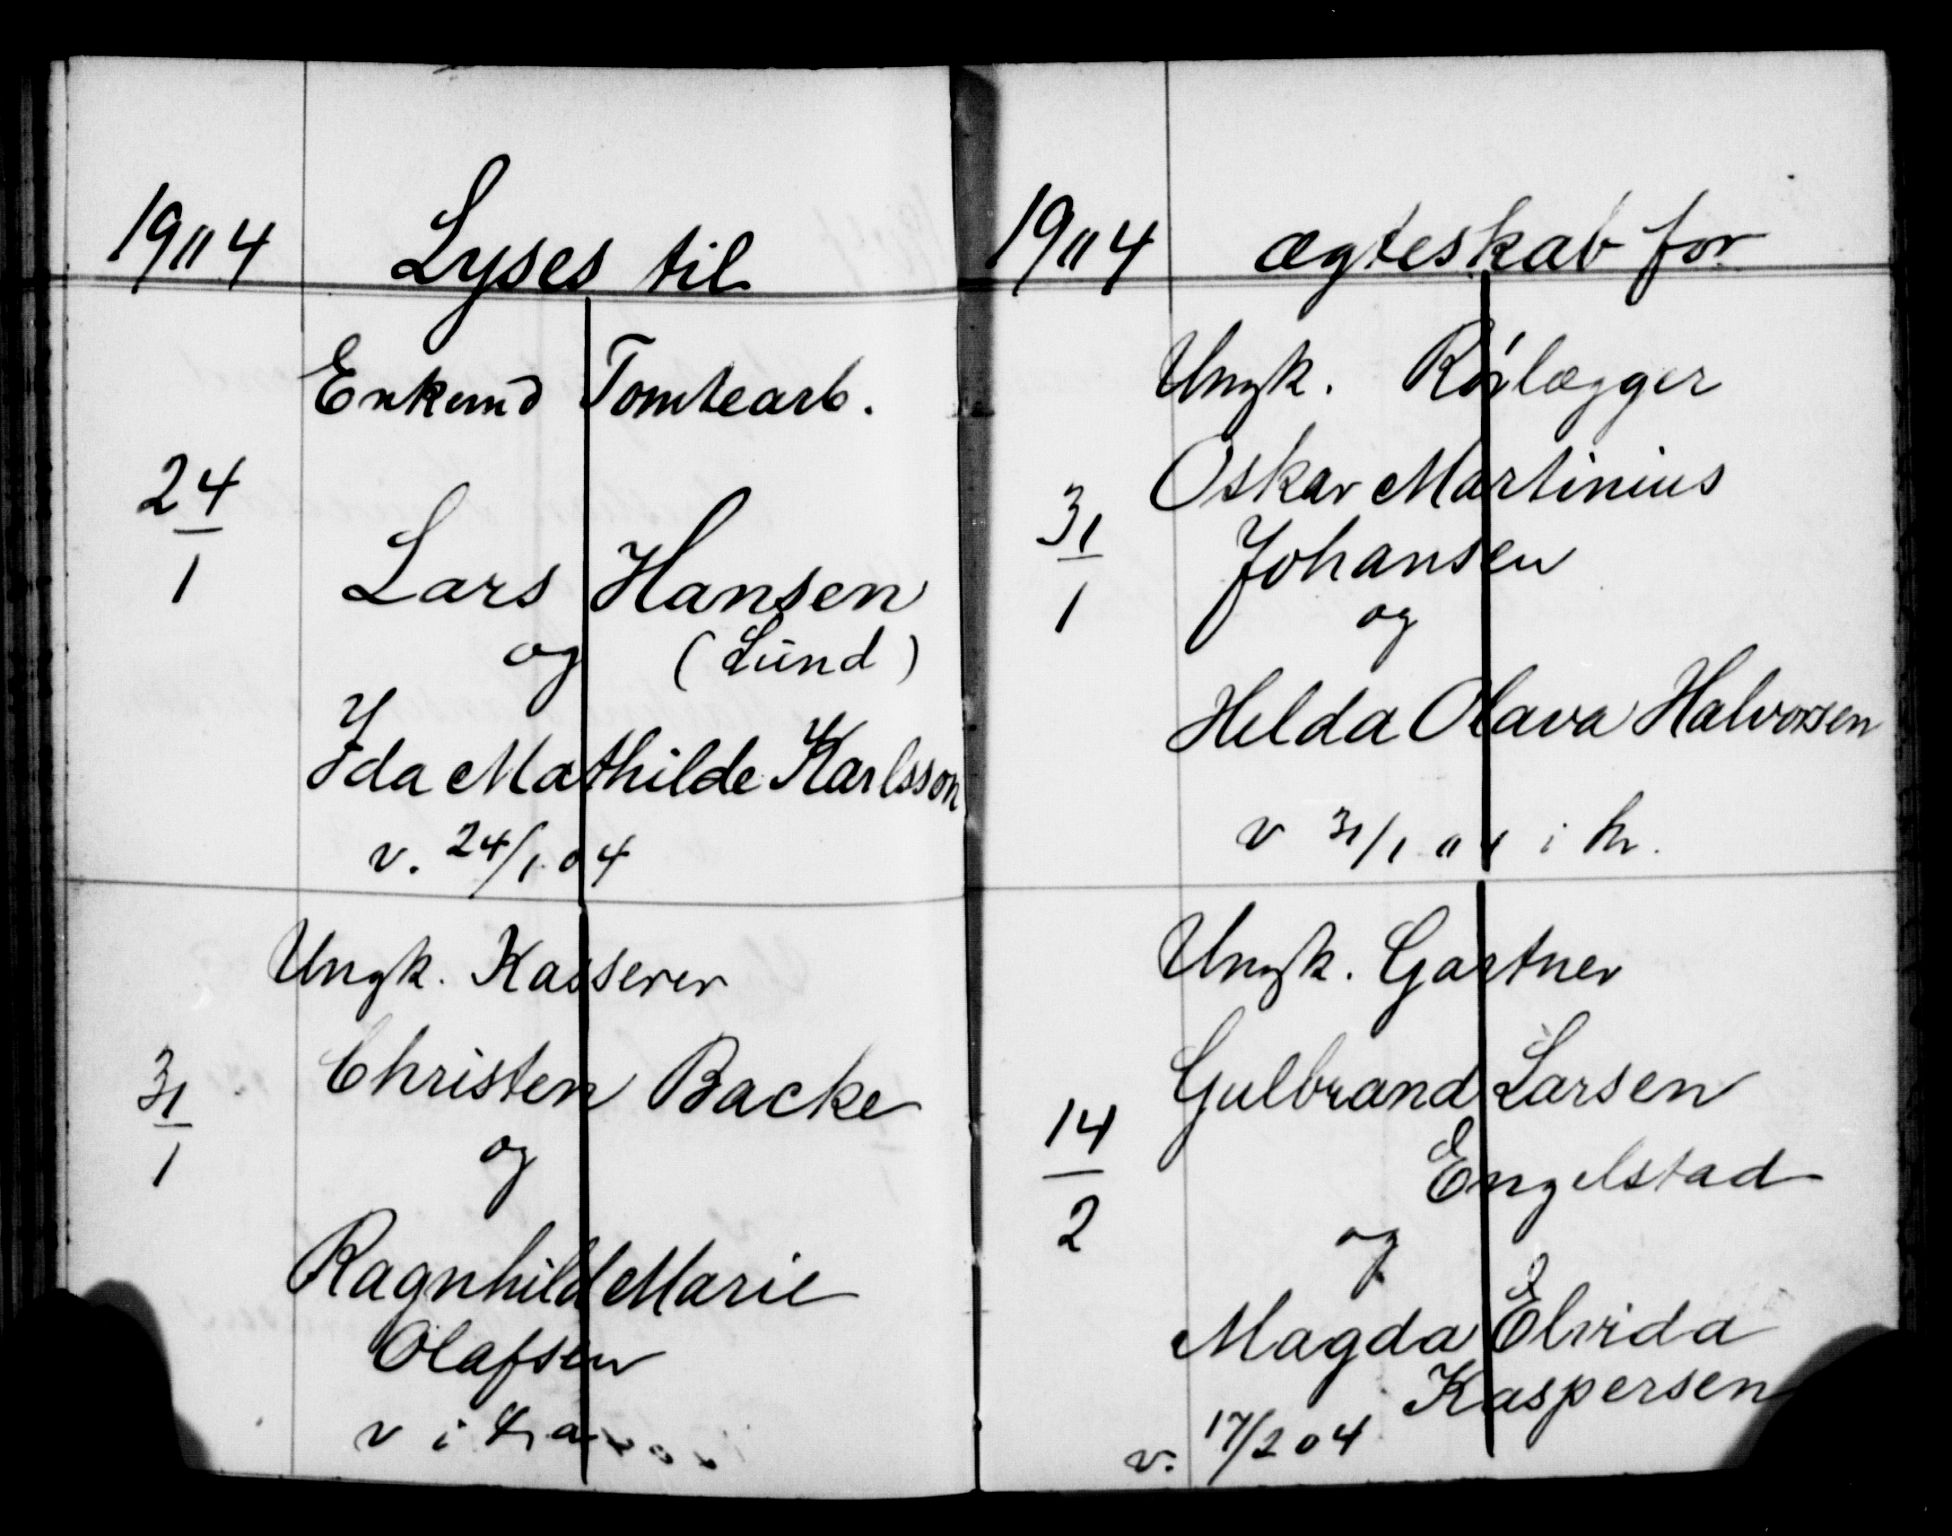 1904
Lyses til
Enkemd Tomtearb.
24/1
Lars Hansen
og (Lund)
Ida Mathilde Karlsson
v. 24/1 04
Ungk. Kasserer
31/1
Christen Backe
og
Ragnhild Marie
Olafsen
v i
1904
ægteskab for
Ungk. Rörlægger
Oskar Martinius
31/1
Johansen
og
Helda Olava Halvorsen
v 31/1 04 i kr.
Ungk. Gartner
Gulbrand Larsen
14/2
Engelstad
og
Magda Elvida
Kaspersen
v. 17/2 04